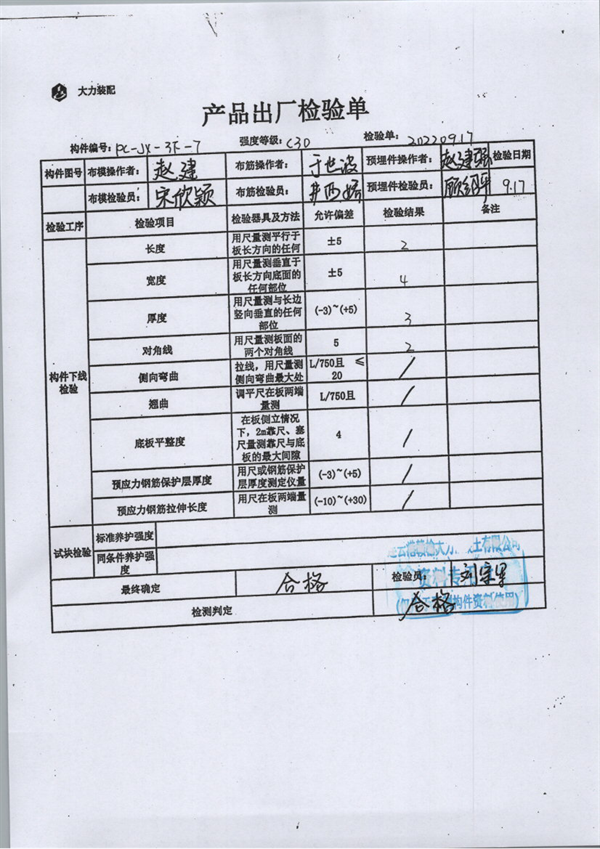 大力装配
产品出厂检验单
构件编号: PC-JX-3F-7 强度等级: C30 检验单: 20220917
构件图号 布模操作者: 赵建 布筋操作者: 于世波 预埋件操作者: 赵建强 检验日期
布模检验员: 宋欣颖 布筋检验员: 预埋件检验员: 9.17
检验工序 检验项目 检验器具及方法 允许偏差 检验结果 备注
构件下线检验
长度 用尺量测平行于板长方向的任何 ±5 2
宽度 用尺量测垂直于板长方向底面的任何部位 ±5 4
厚度 用尺量测与长边竖向垂直的任何部位 (-3)~(+5) 3
对角线 用尺量测板面的两个对角线 5 2
侧向弯曲 拉线，用尺量测侧向弯曲最大处 L/750且 ≤20 /
翘曲 调平尺在板两端量测 L/750且 /
底板平整度 在板侧立情况下，2m靠尺、塞尺量测靠尺与底板的最大间隙 4 /
预应力钢筋保护层厚度 用尺或钢筋保护层厚度测定仪量 (-3)~(+5) /
预应力钢筋拉伸长度 用尺在板两端量测 (-10)~(+30) /
试块检验 标准养护强度
同条件养护强度
最终确定 合格 检验员:
检测判定 合格
资料专用